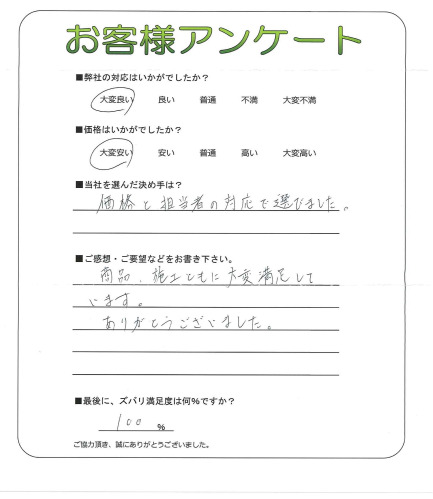 お客様アンケート
■弊社の対応はいかがでしたか？
大変良い 良い 普通 不満 大変不満
■価格はいかがでしたか？
大変安い 安い 普通 高い 大変高い
■当社を選んだ決め手は？
価格と担当者の対応で選びました。
■ご感想・ご要望などをお書き下さい。
商品、施工ともに大変満足して
います。
ありがとうございました。
■最後に、ズバリ満足度は何%ですか？
100 %
ご協力頂き、誠にありがとうございました。